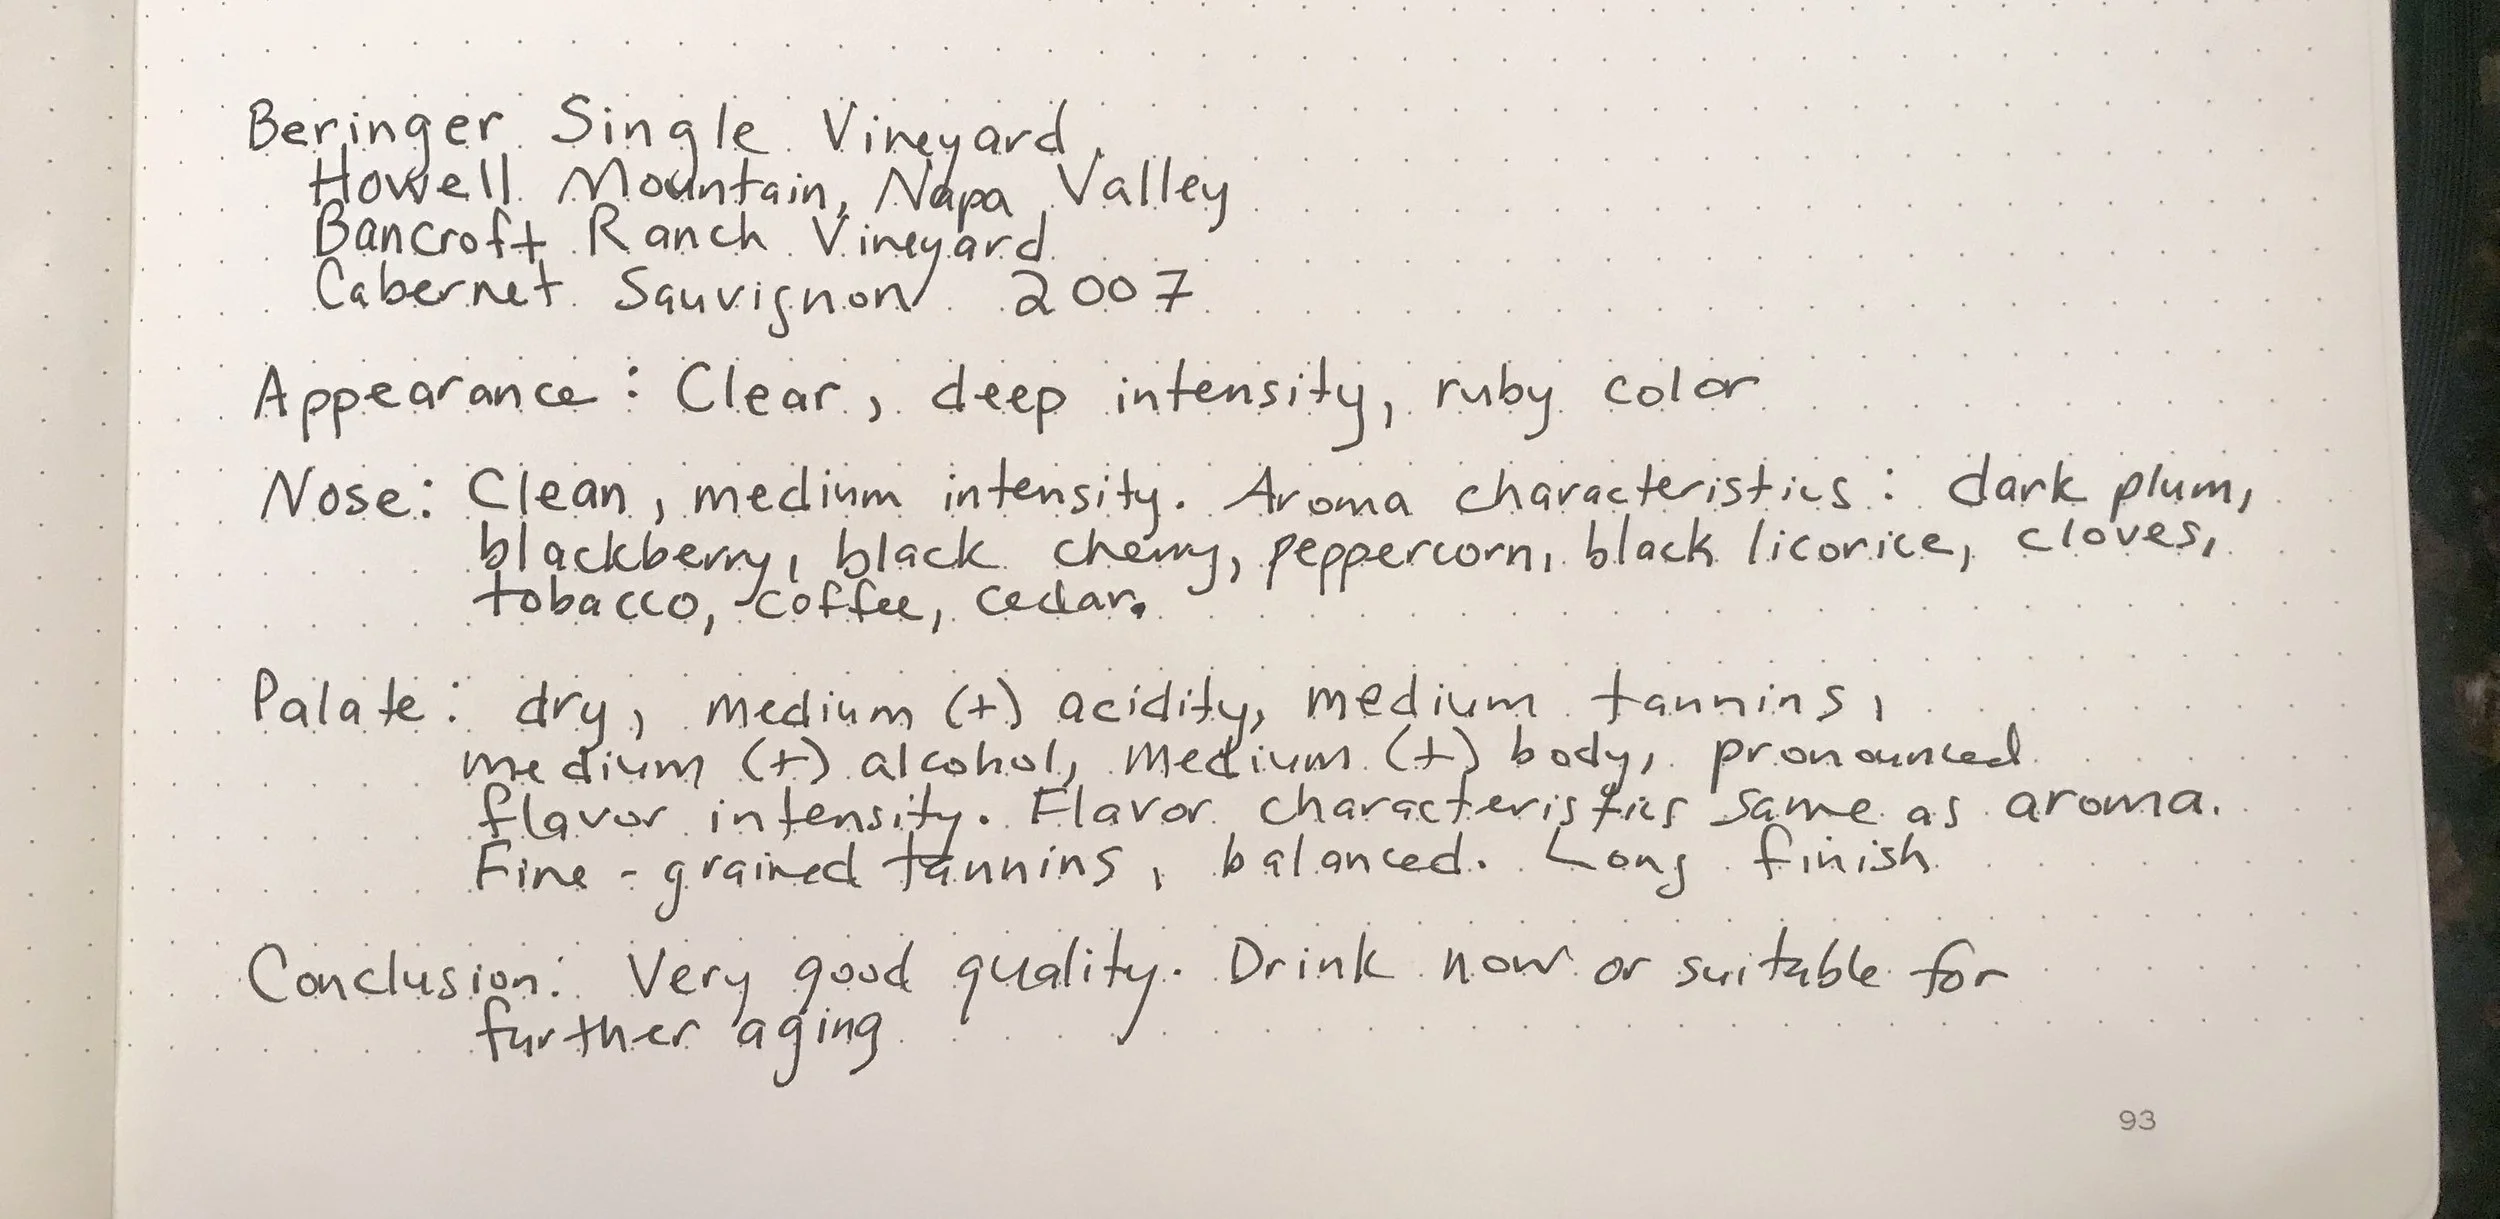 Beringer Single Vineyard,
Howell Mountain, Napa Valley
Bancroft Ranch Vineyard
Cabernet Sauvignon 2007
Appearance: Clear, deep intensity, ruby color
Nose: Clean, medium intensity. Aroma characteristics: dark plum,
blackberry, black cherry, peppercorn, black licorice, cloves,
tobacco, coffee, cedar.
Palate: dry, medium (+) acidity, medium tannins,
medium (+) alcohol, medium (+) body, pronounced
flavor intensity. Flavor characteristics same as aroma.
Fine-grained tannins, balanced. Long finish
Conclusion: Very good quality. Drink now or suitable for
further aging
93